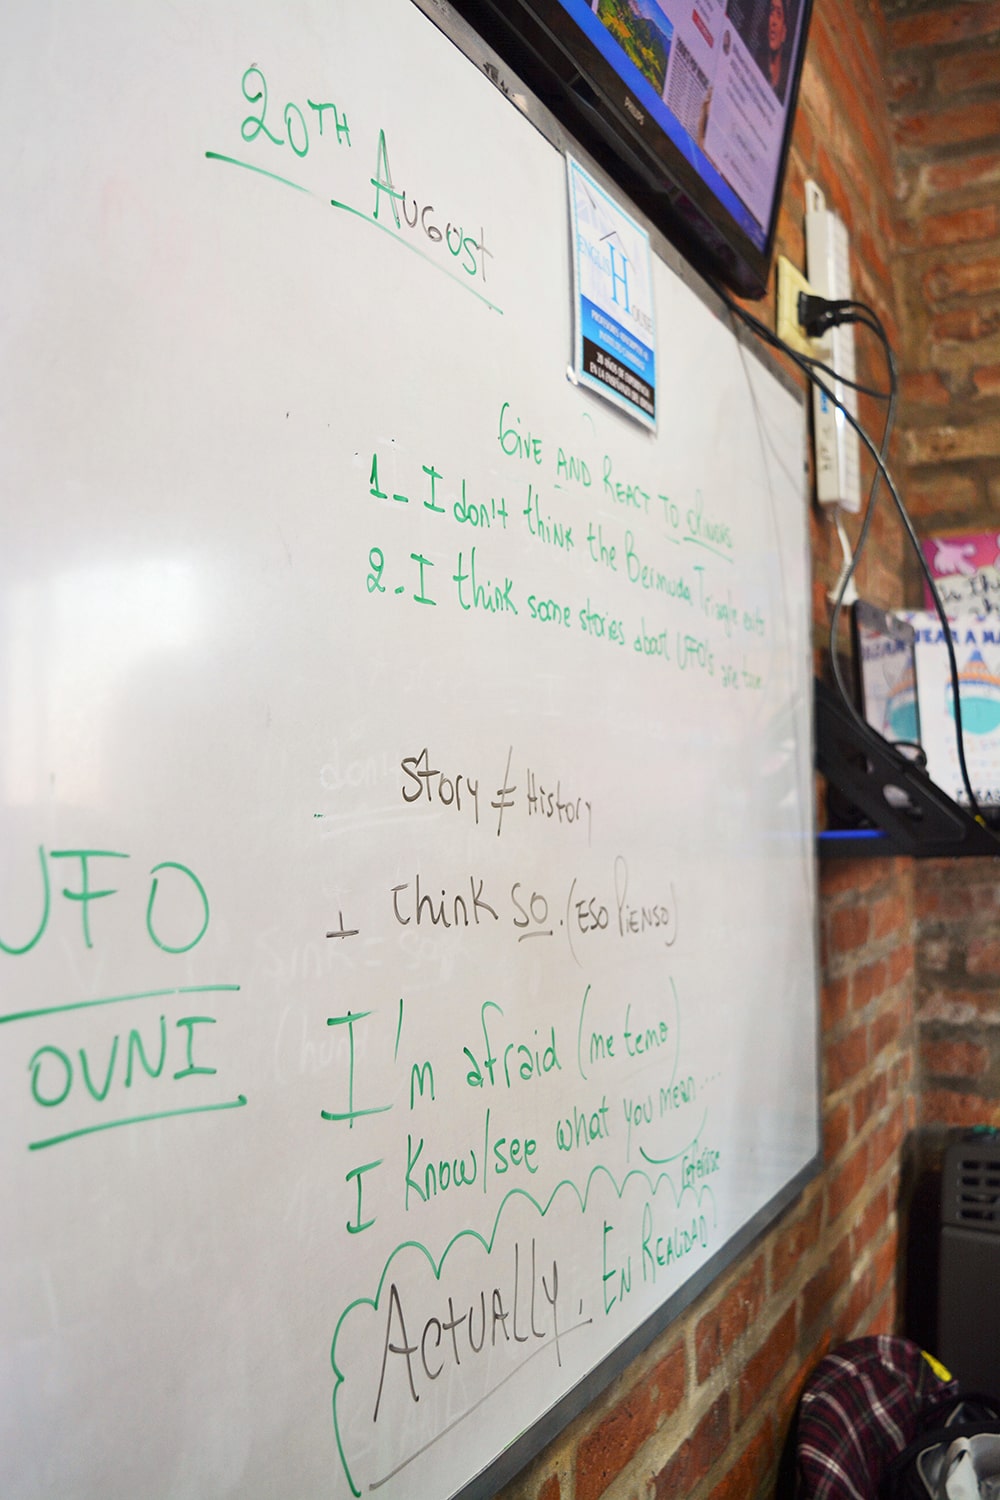 20TH August
PHILIPS
ENGLISH HOUSE
GIVE AND REACT TO OPINIONS
1_ I don't think the Bermuda Triangle exists
2_ I think some stories about UFO's are true
Story ≠ History
I think so. (ESO PIENSO)
UFO
OVNI
I'm afraid (me temo)
I know/see what you mean....
ACTUALLY, EN REALIDAD
WEAR A MA